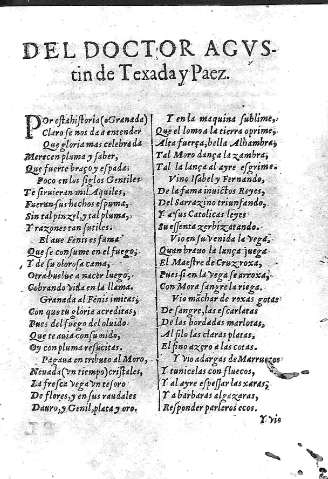 DEL DOCTOR AGVS-
tin de Texada y Paez.
POr esta historia (o Granada)
Claro se nos da a entender
Que gloria mas celebrada
Merecen pluma y saber,
Que fuerte braço y espada:
Poco en los siglos Gentiles
Te siruieran mil Aquiles,
Fueran sus hechos espuma,
Sin tal pinzel, y tal pluma,
Y razones tan sutiles.
El aue Fenis es fama
Que se consume en el fuego;
Y de su olorosa cama,
Otra buelue a nacer luego,
Cobrando vida en la llama.
Granada al Fenis imitas;
Con que tu gloria acreditas,
Pues del fuego del oluido
Que te auia consumido,
Oy con pluma resucitas.
Pagaua en tributo al Moro,
Neuada (vn tiempo) cristales,
La fresca vega vn tesoro
De flores, y en sus raudales
Dauro, y Genil, plata y oro.
Y en la maquina sublime,
Que el lomo a la tierra oprime,
Alta fuerça, bella Alhambra,
Tal Moro dança la zambra,
Tal la lança al ayre esgrime.
Vino Isabel y Fernando,
De la fama inuictos Reyes,
Del Sarrazino triunfando,
Y a sus Catolicas leyes
Su essenta zerbiz atando.
Vio en su venida la vega,
Quan brauo la lança juega
El Maestre de Cruz roxa,
Pues si en la vega se arroxa,
Con Mora sangre la riega.
Vio máchar de roxas gotas
De sangre, las escarlatas
De las bordadas marlotas,
Al filo las claras platas,
El fino azero a las cotas.
Y vio adargas de Marruecos
Y tunicelas con fluecos,
Y al ayre espessar las xaras;
Y a barbaras algazaras,
Responder parleros ecos.
Y vio